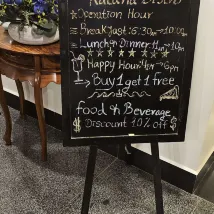 Operation Hour
Breakfast: 6:30am→10:00am
Lunch & Dinner: 11am→10pm
Happy Hour: 4pm→6pm
Buy 1 get 1 free
Food & Beverage
$ Discount 10% off $